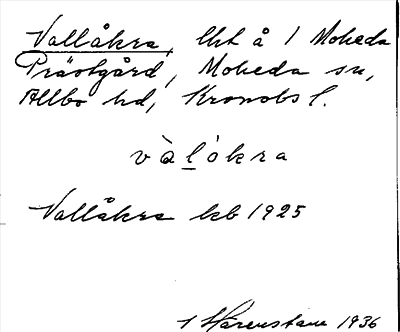 Vallåkra, lht å 1 Moheda
Prästgård, Moheda sn,
Allbo hd, Kronobs l.
vàlòkra
Vallåkra kb 1925
1936